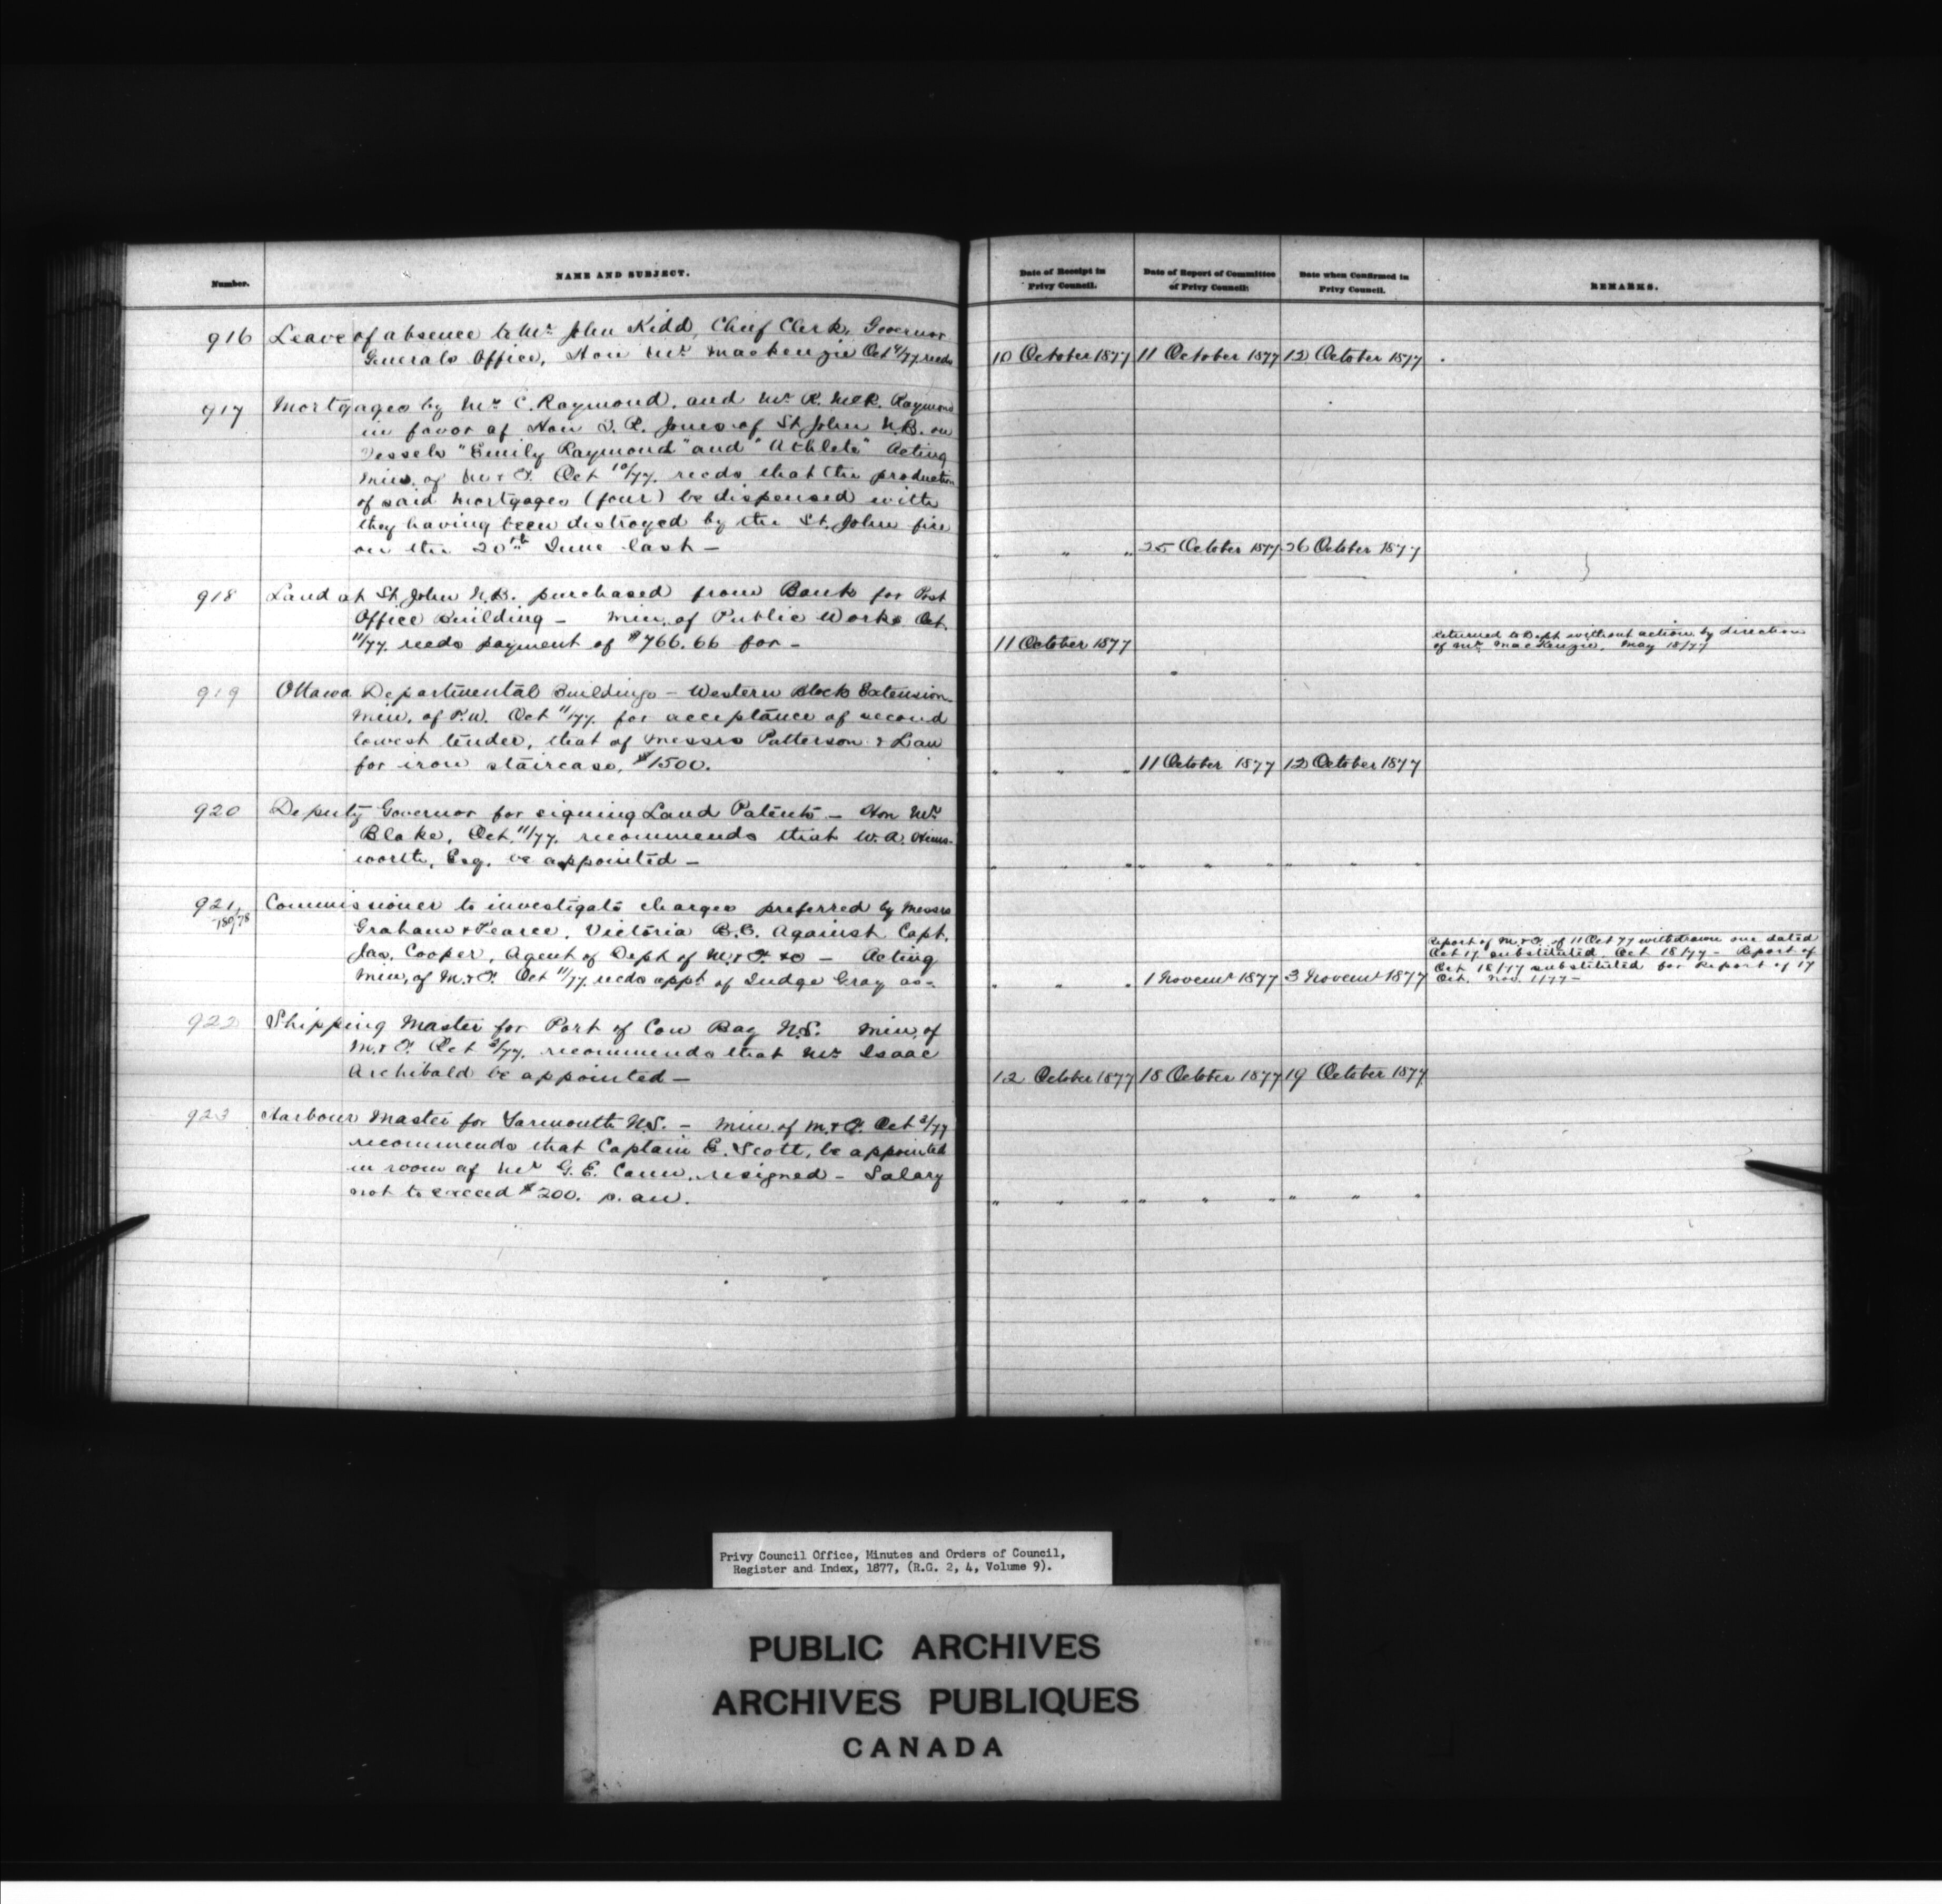 Number.
NAME AND SUBJECT.
Date of Receipt in Privy Council.
Date of Report of Committee of Privy Council.
Date when Confirmed in Privy Council.
REMARKS.
916 Leave of absence to Mr John Kidd, Chief Clerk, Governor
Generals Office, Hon Mr Mackenzie Oct 9/77 recds
10 October 1877 11 October 1877 12 October 1877
917 Mortgages by Mr C. Raymond, and Mr R. McK. Raymond
in favor of Hon T. R. Jones of St John N.B. on
Vessels "Emily Raymond" and "Athlete" Acting
Min. of M & F. Oct 10/77. recds that the production
of said mortgages (four) be dispensed with
they having been destroyed by the St. John fire
on the 20th June last —
" " " 25 October 1877 26 October 1877
918 Land at St John N.B. purchased from Bank for Post
Office Building — Min. of Public Works Oct.
11/77. recds payment of $766.66 for —
11 October 1877
Returned to Dept without action by direction
of Mr. MacKenzie, May 18/77
919 Ottawa Departmental Buildings — Western Block Extension.
Min. of P.W. Oct 11/77. for acceptance of second
lowest tender, that of Messrs Patterson & Law
for iron staircase, $1500.
" " " 11 October 1877 12 October 1877
920 Deputy Governor for signing Land Patents — Hon Mr
Blake, Oct. 11/77. recommends that W. A. Hims-
worth, Esq. be appointed —
" " " " " " " " "
921 Commissioner to investigate charges preferred by Messrs
780/78
Graham & Pearce, Victoria B.C. Against Capt.
Jas. Cooper, Agent of Dept of M. & F. &c — Acting
Min. of M. & F. Oct 11/77. recds appt of Judge Gray as —
" " " 1 Novemr 1877 3 Novemr 1877
Report of M. & F. of 11 Oct 77 withdrawn one dated
Oct 17 substituted. Oct 18/77 — Report of
Oct 18/77 substituted for Report of 17
Oct. Nov. 1/77 —
922 Shipping Master for Port of Cow Bay N.S. Min. of
M. & F. Oct 2/77. recommends that Mr Isaac
Archibald be appointed —
12 October 1877 18 October 1877 19 October 1877
923 Harbour Master for Yarmouth N.S. — Min. of M. & F. Oct 2/77
recommends that Captain E. Scott, be appointed
in room of Mr G. E. Cann, resigned — Salary
not to exceed $200. p. an.
" " " " " " " " "
Privy Council Office, Minutes and Orders of Council,
Register and Index, 1877, (R.G. 2, 4, Volume 9).
PUBLIC ARCHIVES
ARCHIVES PUBLIQUES
CANADA